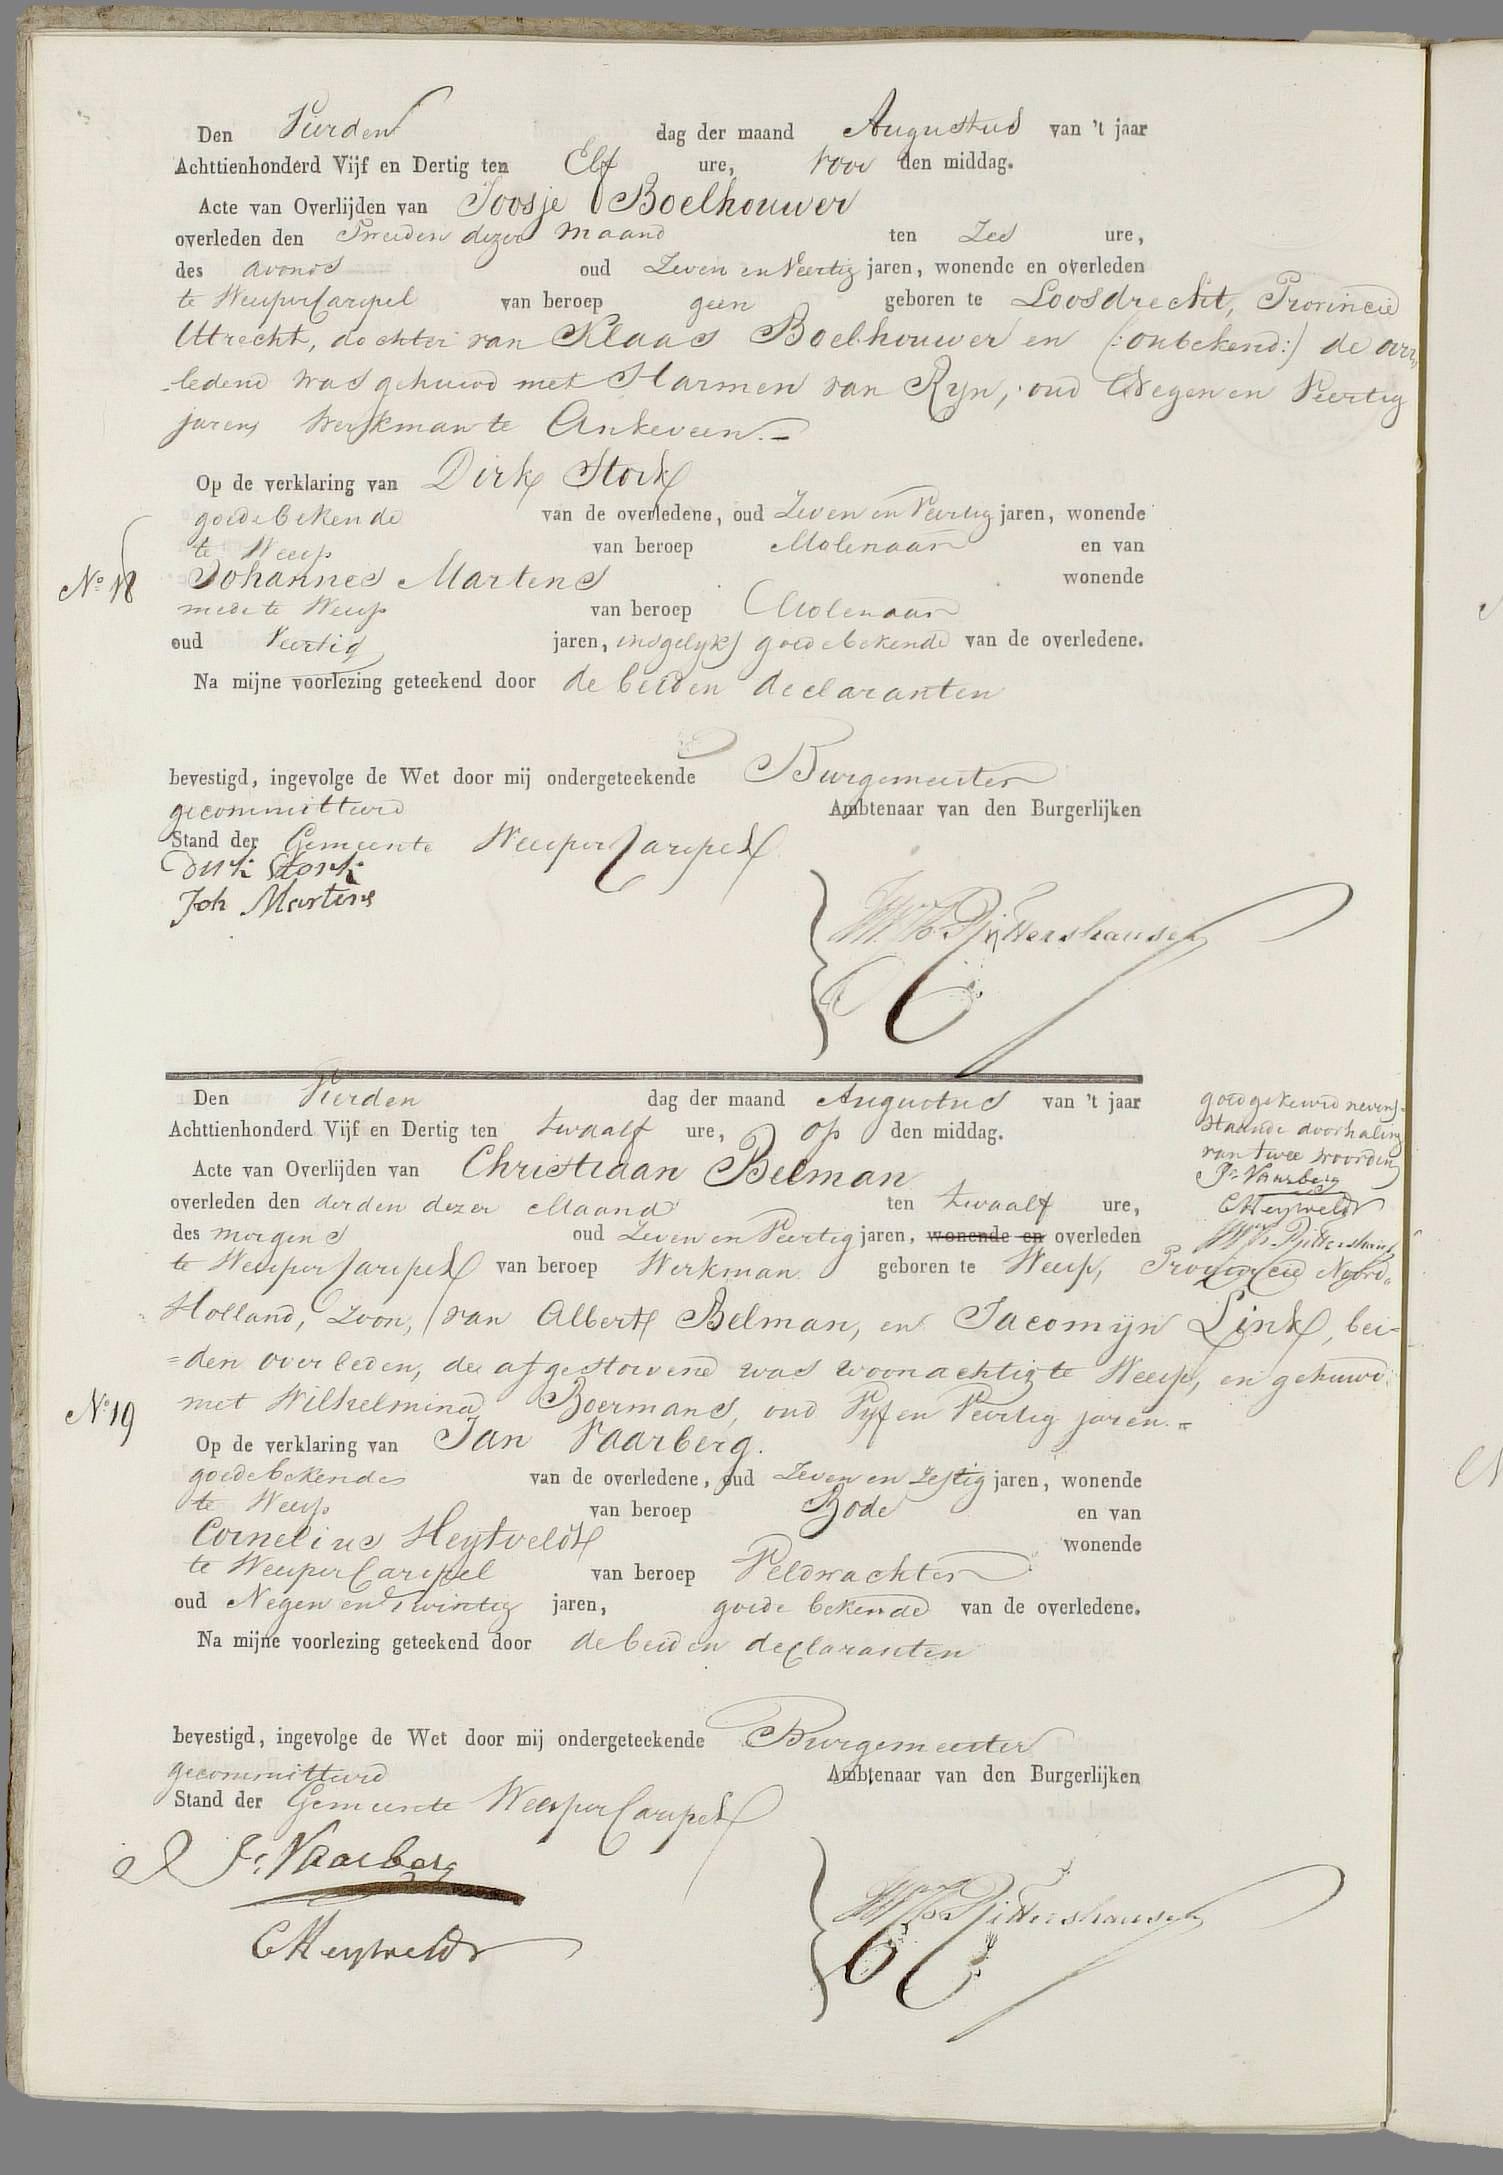 Den Vierden dag der maand Augustus van 't jaar
Achttienhonderd Vijf en Dertig ten Elf ure, voor den middag.
Acte van Overlijden van Joosje Boelhouwer
overleden den Tweeden dezer maand ten Zes ure,
des avonds oud Zeven en Veertig jaren, wonende en overleden
te WeesperCarspel van beroep geen geboren te Loosdrecht, Provincie
Uttrecht, dochter van Klaas Boelhouwer en (:onbekend:) de over
-ledene was gehuwd met Harmen van Ryn, oud Negen en Veertig
jaren, Werkman te Ankeveen.-
Op de verklaring van Dirk Stork
goede bekende van de overledene, oud Zeven en Veertig jaren, wonende
te Weesp van beroep Molenaar en van
No 18
Johannes Martens wonende
mede te Weesp van beroep Molenaar
oud Veertig jaren, insgelyks goede bekende van de overledene.
Na mijne voorlezing geteekend door de beiden declaranten
bevestigd, ingevolge de Wet door mij ondergeteekende Burgemeester
gecommitteerd Ambtenaar van den Burgerlijken
Stand der Gemeente WeesperCarspel
Dirk Stork
Joh Martens
Rittershausen
Den Vierden dag der maand Augustus van 't jaar
Achttienhonderd Vijf en Dertig ten twaalf ure, op den middag.
Acte van Overlijden van Christiaan Belman
overleden den derden dezer Maand ten twaalf ure,
des morgens oud Zeven en Veertig jaren, wonende en overleden
goedgekeurd nevens-
staande doorhaling
van twee woorden
Js Vaarberg
CHeytveldt
Rittershausen
te WeesperCarspel van beroep Werkman geboren te Weesp, Provincie Noord-
Holland, zoon, van Albert Belman, en Jacomijn Link, bei-
=den overleden, de afgestorvene was woonachtig te Weesp, en gehuwd
No 19
met Wilhelmina Boermans, oud Vyf en Veertig jaren.=
Op de verklaring van Jan Vaarberg.
goede bekende van de overledene, oud Zeven en Zestig jaren, wonende
te Weesp van beroep Bode en van
Cornelius Heytveldt wonende
te WeesperCarspel van beroep Veldwachter
oud Negen en Twintig jaren, goede bekende van de overledene.
Na mijne voorlezing geteekend door de beiden declaranten
bevestigd, ingevolge de Wet door mij ondergeteekende Burgemeester
gecommitteerd Ambtenaar van den Burgerlijken
Stand der Gemeente WeesperCarspel
Js Vaarberg
CHeytveldt
Rittershausen